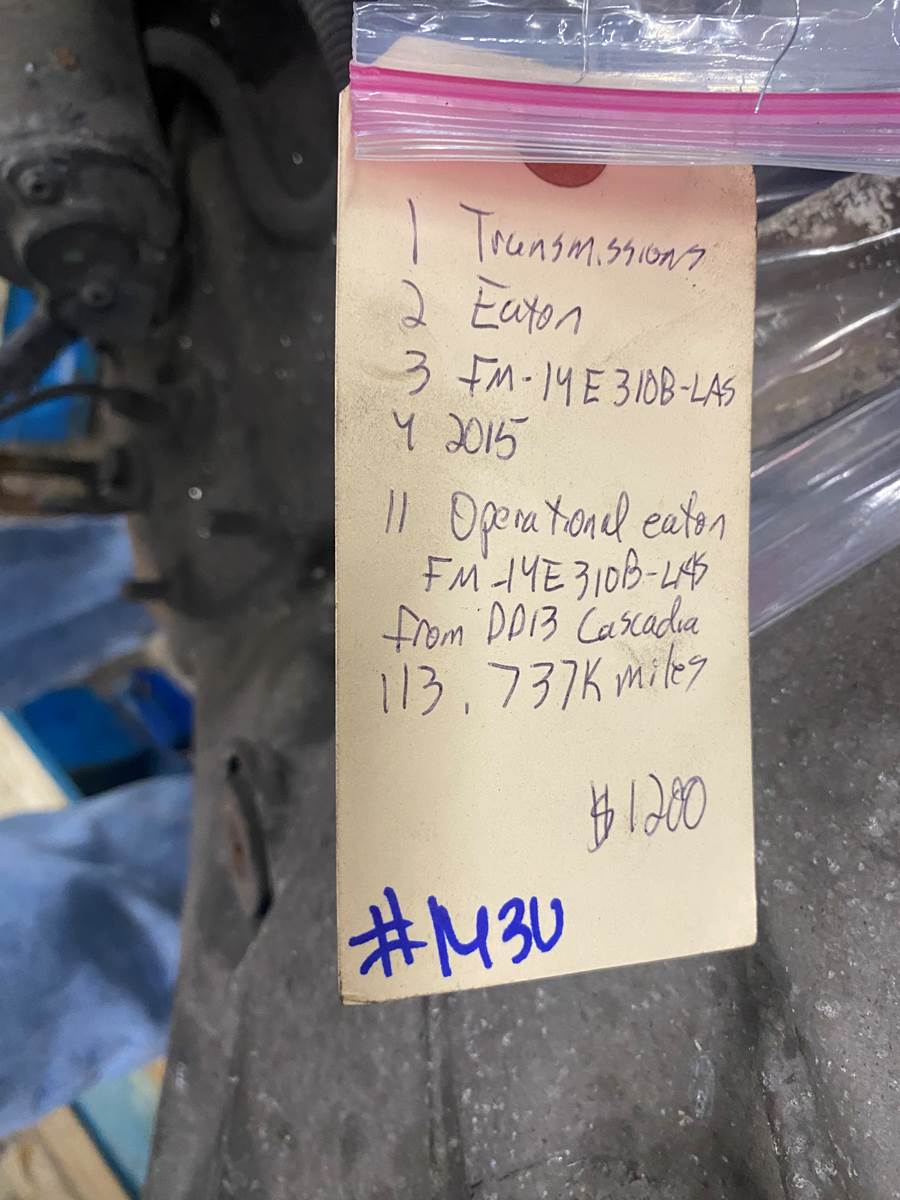 1 Transmissions
2 Eaton
3 FM-14E310B-LAS
4 2015
11 Operational eaton
FM-14E310B-LAS
from DD13 Cascadia
113.737K miles
$1200
#1430